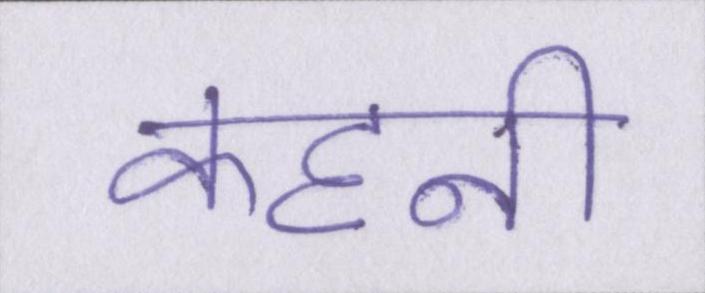 कहनी